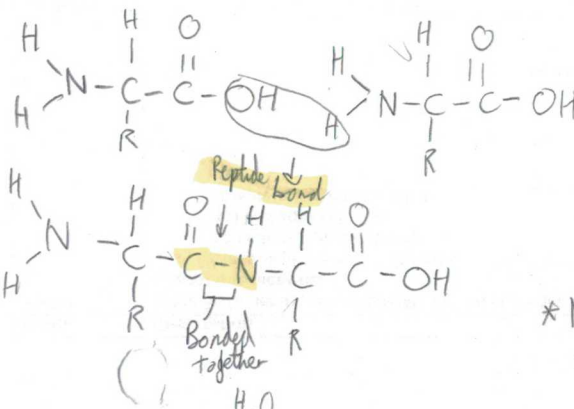 H H O H H O
H N - C - C - OH H N - C - C - OH
R R
Peptide bond
H H O H H O
H N - C - C - N - C - C - OH
R R
Bonded together
H O
*1